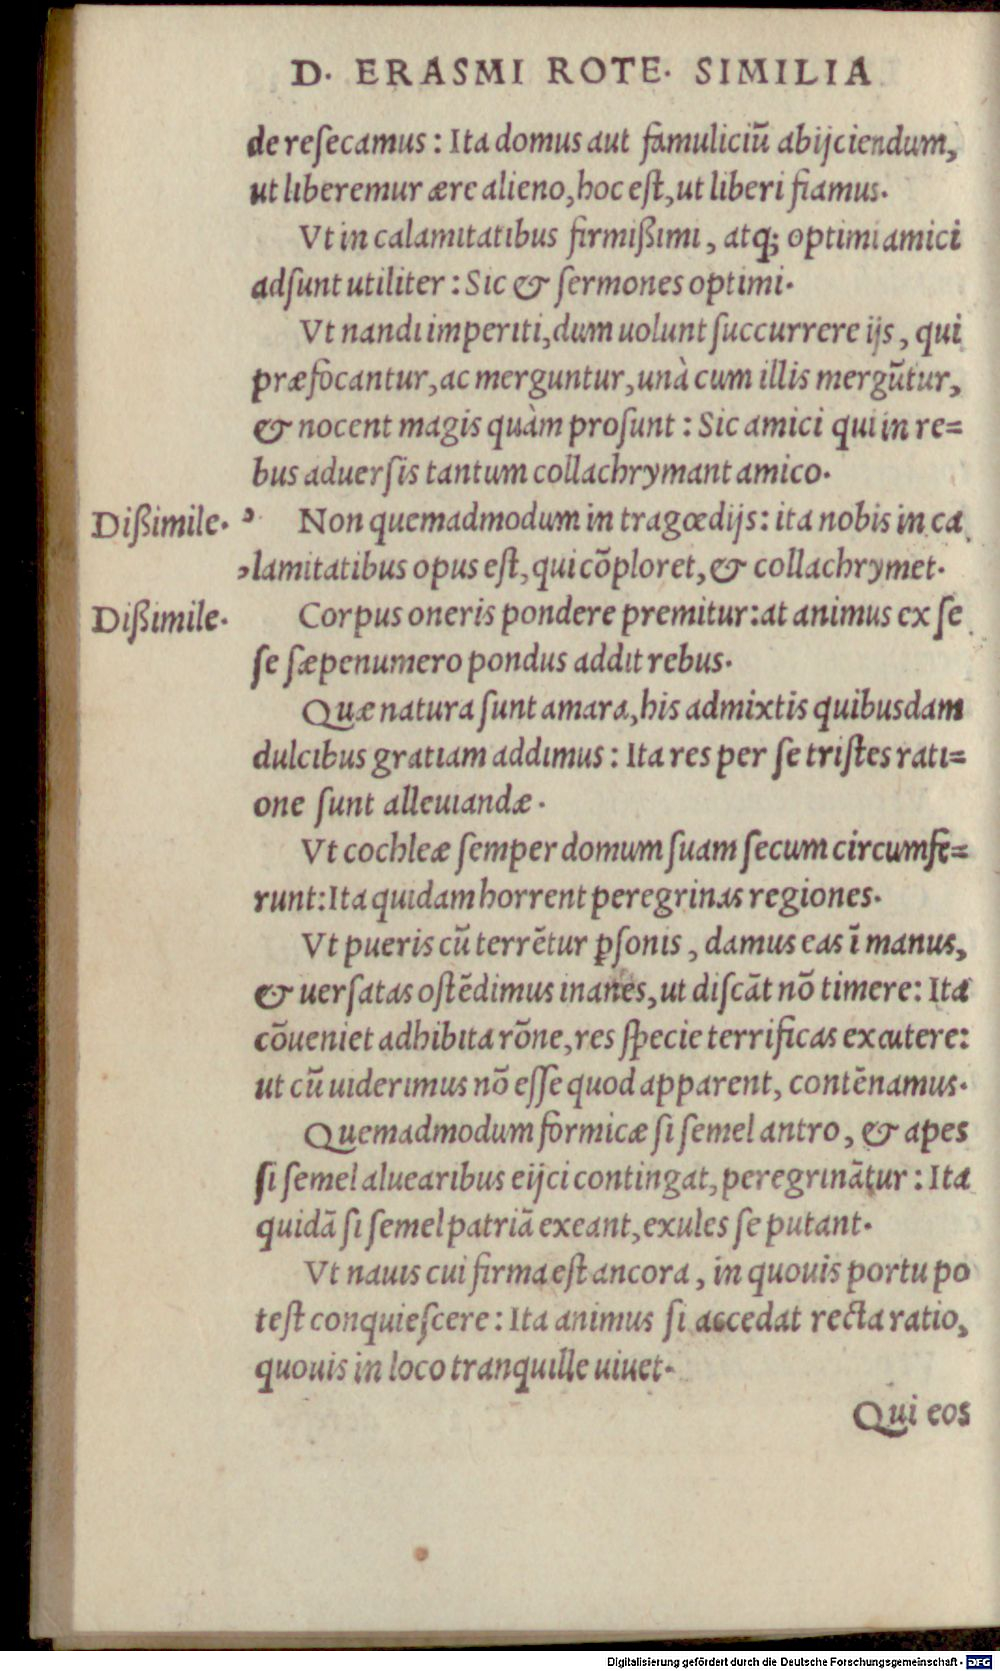 D. ERASMI ROTE. SIMILIA
de reſecamus: Ita domus aut famuliciū abijciendum,
ut liberemur ære alieno, hoc eſt, ut liberi fiamus.
Vt in calamitatibus firmißimi, atq; optimi amici
adſunt utiliter: Sic & ſermones optimi.
Vt nandi imperiti, dum uolunt ſuccurrere ijs, qui
præfocantur, ac merguntur, unà cum illis mergūtur,
& nocent magis quàm proſunt: Sic amici qui in re=
bus aduerſis tantum collachrymant amico.
Dißimile. Non quemadmodum in tragœdijs: ita nobis in ca
lamitatibus opus eſt, qui cōploret, & collachrymet.
Dißimile. Corpus oneris pondere premitur: at animus ex ſe
ſe ſæpenumero pondus addit rebus.
Quæ natura ſunt amara, his admixtis quibusdam
dulcibus gratiam addimus: Ita res per ſe triſtes rati=
one ſunt alleuiandæ.
Vt cochleæ ſemper domum ſuam ſecum circumfe=
runt: Ita quidam horrent peregrinas regiones.
Vt pueris cū terrētur ꝑſonis, damus eas ī manus,
& uerſatas oſtēdimus inanes, ut diſcāt nō timere: Ita
cōueniet adhibita rōne, res ſpecie terrificas excutere:
ut cū uiderimus nō eſſe quod apparent, contēnamus.
Quemadmodum formicæ ſi ſemel antro, & apes
ſi ſemel aluearibus eijci contingat, peregrinātur: Ita
quidā ſi ſemel patriā exeant, exules ſe putant.
Vt nauis cui firma eſt ancora, in quouis portu po
teſt conquieſcere: Ita animus ſi accedat recta ratio,
quouis in loco tranquille uiuet.
Qui eos
Digitalisierung gefördert durch die Deutsche Forschungsgemeinschaft - DFG